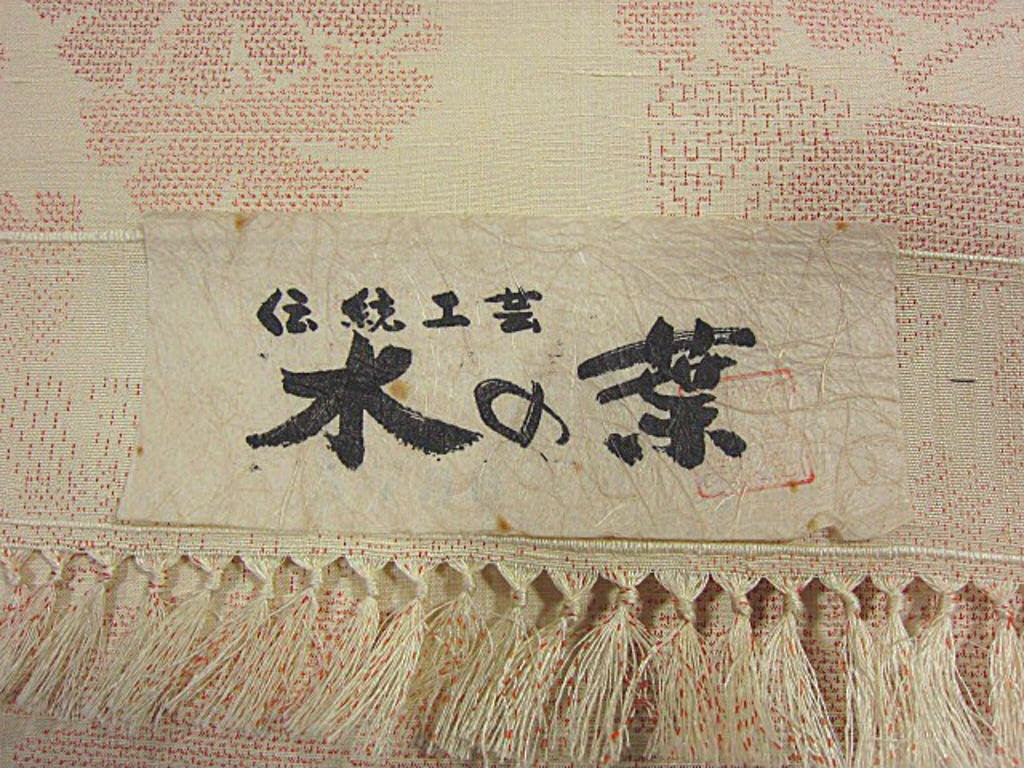 伝統工芸
木の葉